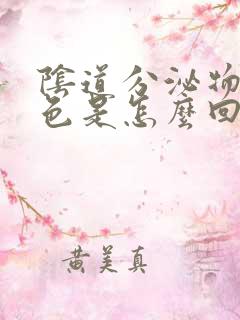 陰道分泌物
色是怎麼回
黃美真